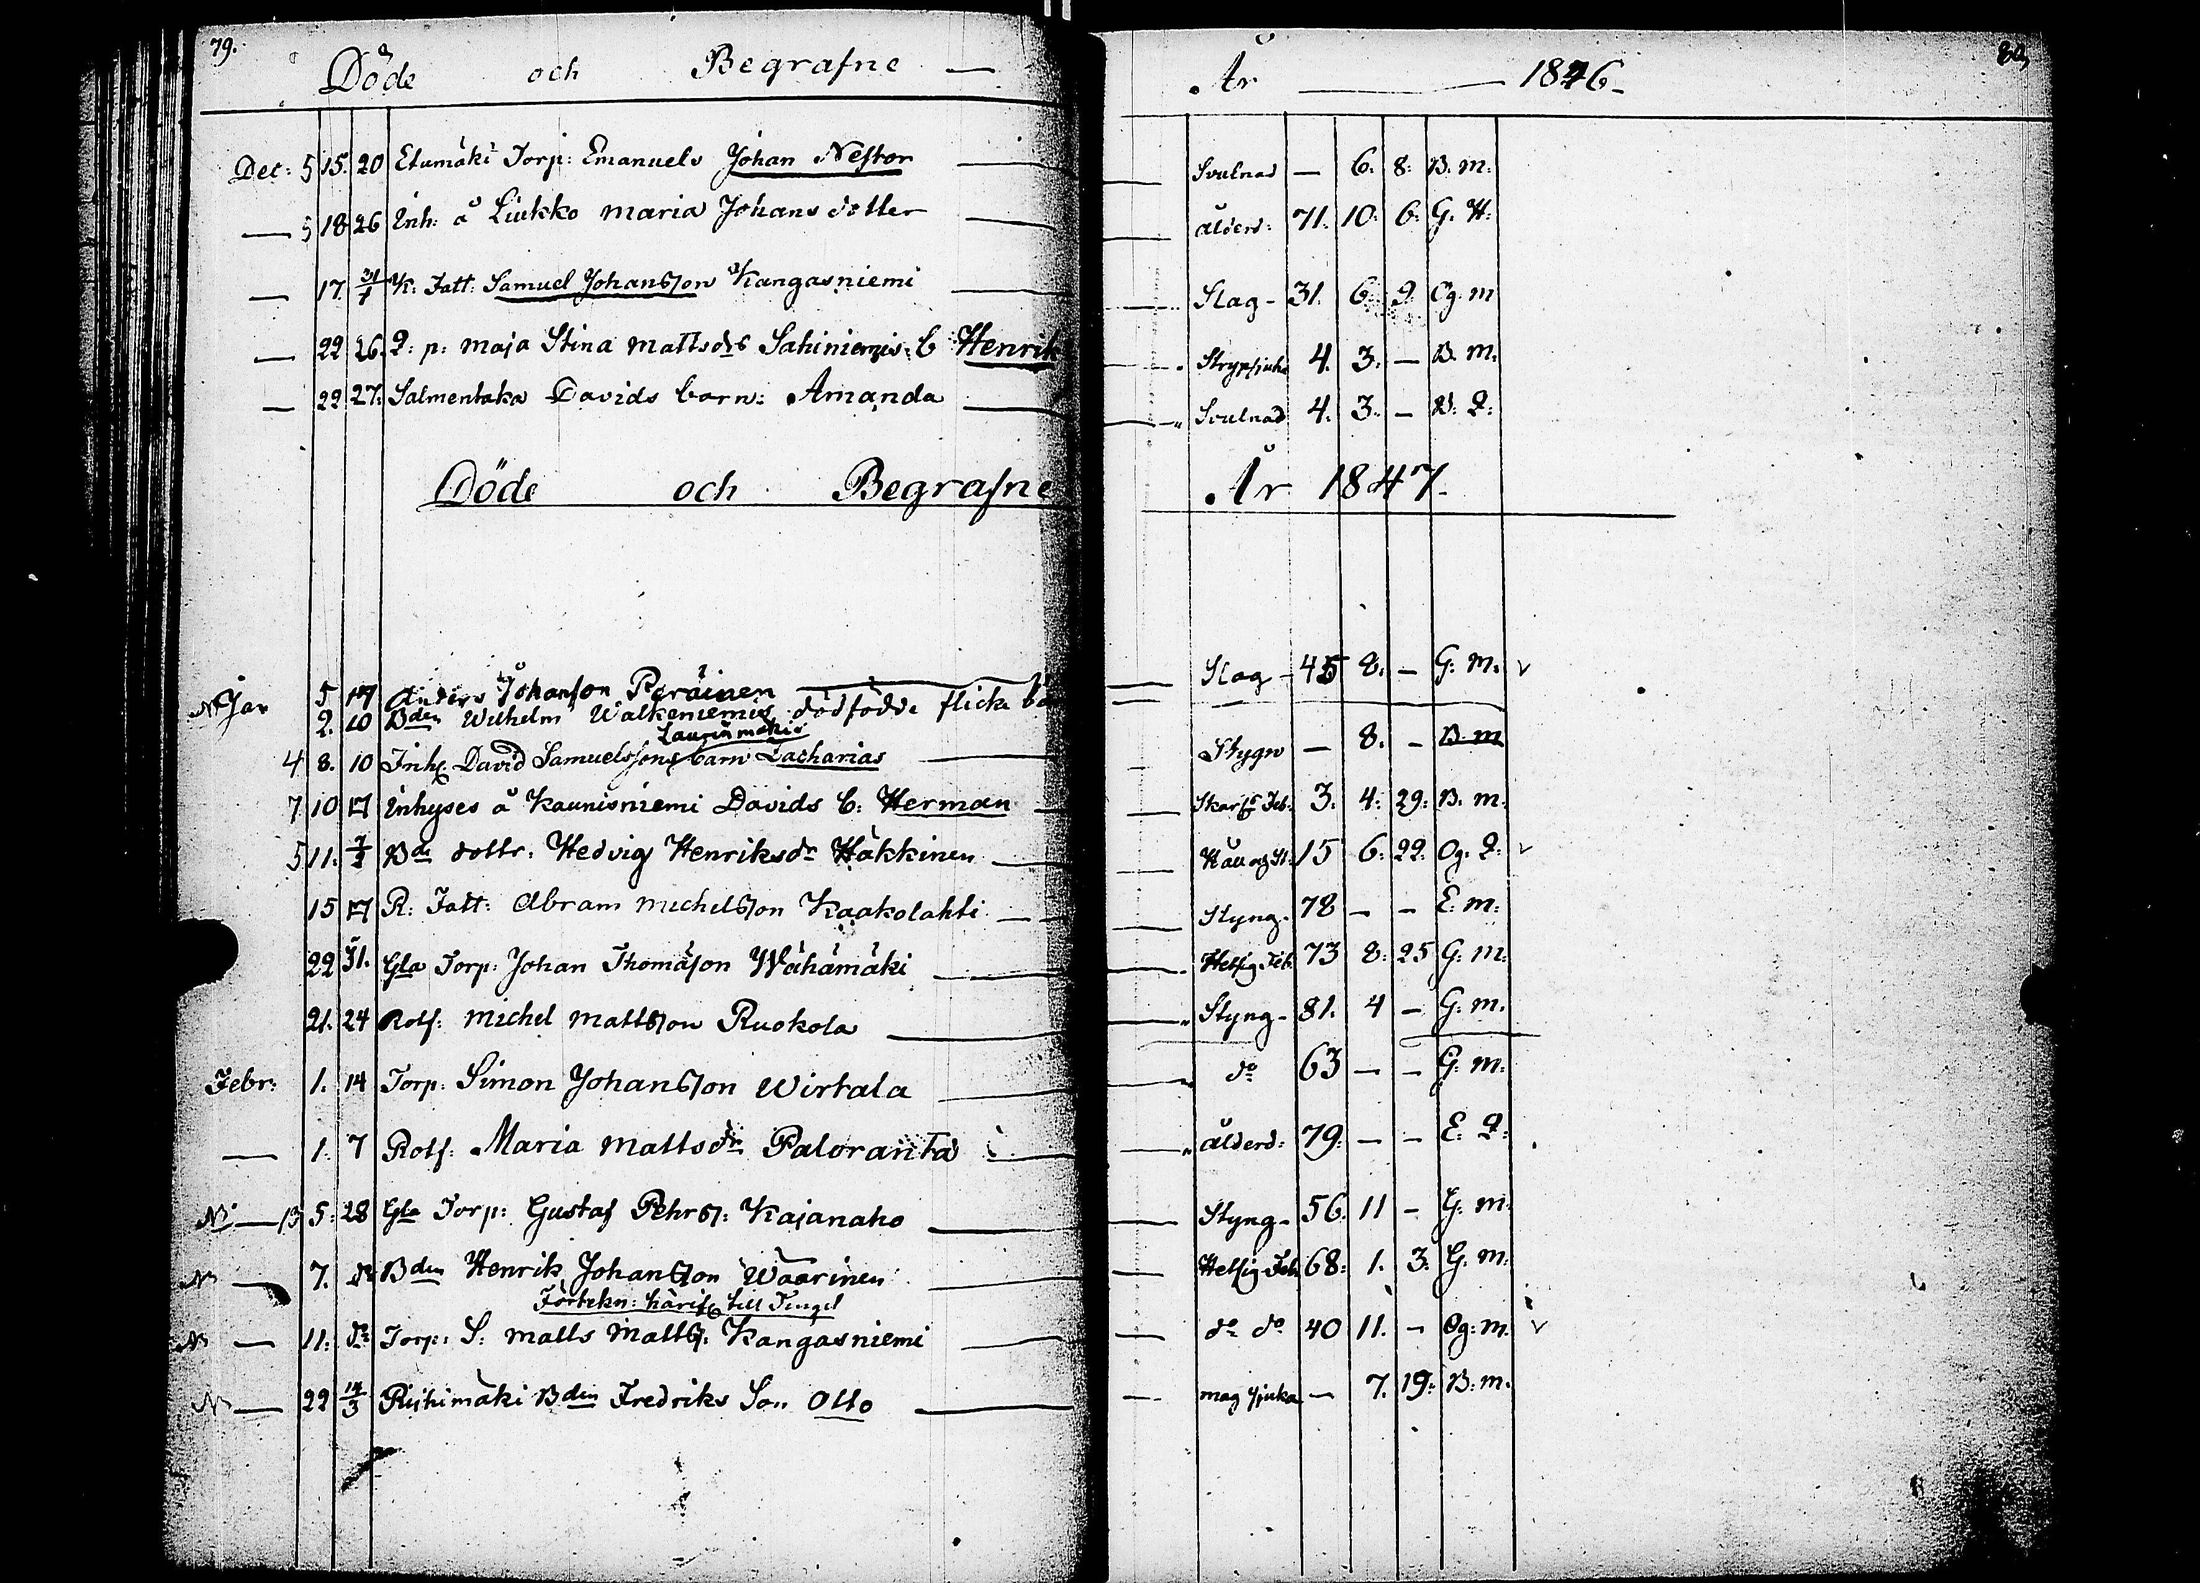 79.
Döde och Begrafne — År — 1846.
Dec: 5 15. 20 Etumäki Torp: Emanuels Johan Nestor — Svulnad — 6. 8: B. m:
— 5 18 26 Inh: å Liukko Maria Johansdotter — ålderd: 71. 10. 6. G. Q:
— 17. 31/1 K: Fatt: Samuel Johansson Kangasniemi — Slag - 31. 6. 9. Og. m
— 22 26. Q: p: Maja Stina Mattsdr Sahiniemis: b Henrik — Strypsjuka 4. 3. — B. m.
— 22 27: Salmentaka Davids barn: Amanda — Svulnad 4. 3. — B. Q:
Döde och Begrafne År 1847.
N Jan 5 17 Anders Johansson Peräinen — Slag - 45 8. — G: m. v
2. 10 Bden Wilhelm Walkeniemis dödfödde flicke
Laurinmäki
4 8. 10 Inh: David Samuelssons barn Zacharias — Stygn — 8. - B. m
7 10 17 Inhyses å Kaunisniemi Davids b: Herman — Skarl: Feb. 3. 4: 29: B. m.
5 11. Bde dottr: Hedvig Henriksdr Häkkinen — Håll och St: 15 6: 22: Og. Q. v
15 17 R: Fatt: Abram Michelsson Kaakolahti — Styng. 78 — — E: m:
22 31. Gla Torp: Johan Thomasson Wähämäki — Hetsig Feb. 73 8: 25 G: m:
21. 24 Rotf: Michel Mattsson Ruokola — Styng - 81. 4 — G: m.
Febr: 1. 14 Torp: Simon Johansson Wirtala — do 63 — — G: m.
— 1. 7 Rotf: Maria Mattsdr Paloranta — ålderd: 79: — — E: Q:
N — 13 5. 28 Gla Torp: Gustaf Pehrss: Kajanaho — Styng - 56. 11 — G: m.
N — 7. do Bden Henrik Johansson Waarinen — Hetsig Feb. 68. 1. 3. G. m.
till Tingel
N — 11. do Torp: S: Matts Mattss: Kangasniemi — do do 40 11. — Og: m. v
N — 22 14/3 Riihimäki Bden Fredriks Son Otto — mag sjuka — 7. 19: B: m.